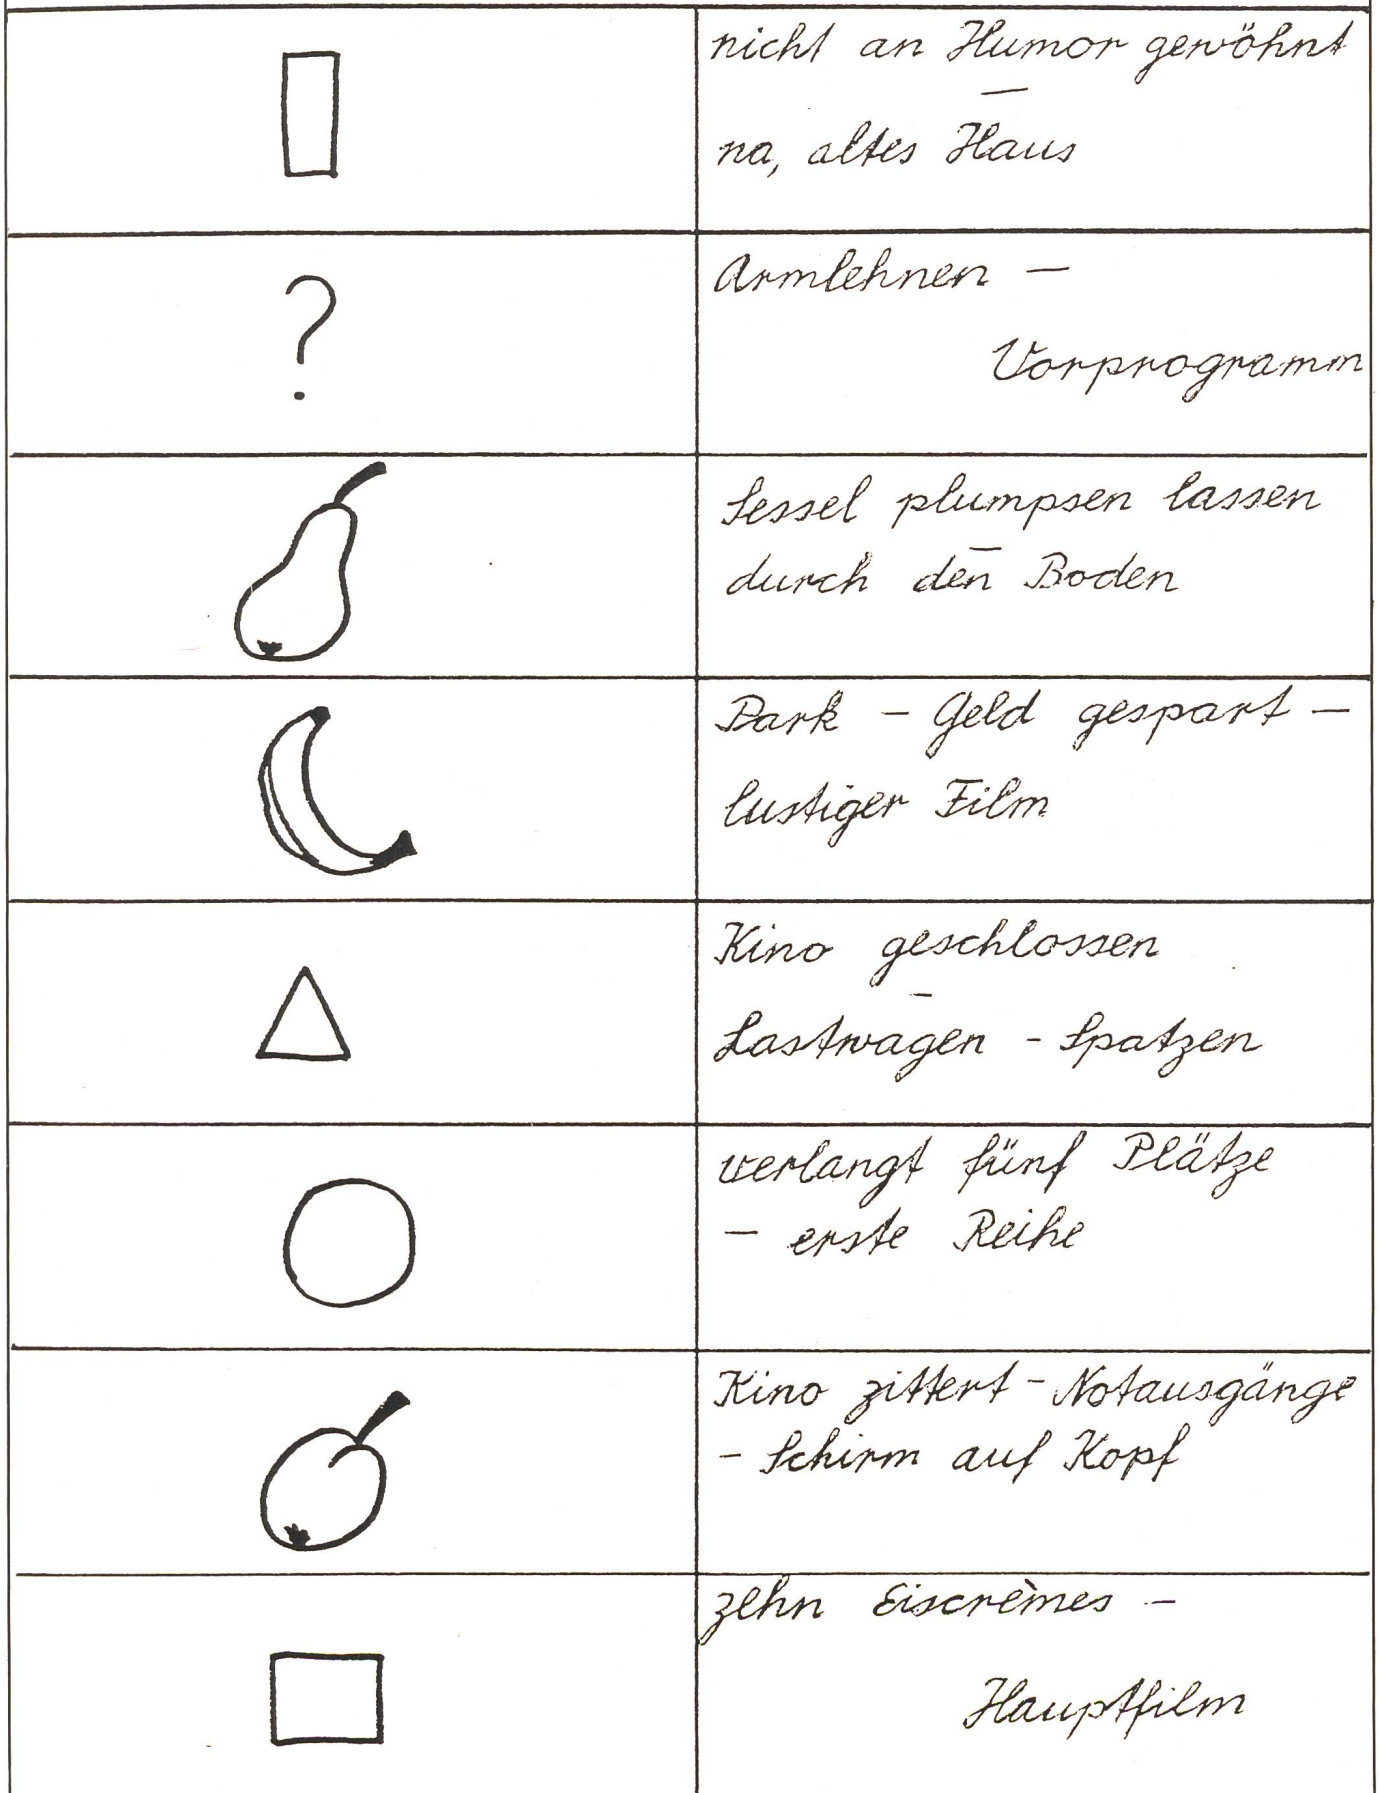 nicht an Humor gewöhnt
—
na, altes Haus
?
Armlehnen —
Vorprogramm
Sessel plumpsen lassen
—
durch den Boden
Park – Geld gespart –
lustiger Film
Kino geschlossen
–
Lastwagen - Spatzen
verlangt fünf Plätze
– erste Reihe
Kino zittert - Notausgänge
- Schirm auf Kopf
zehn Eiscrèmes –
Hauptfilm